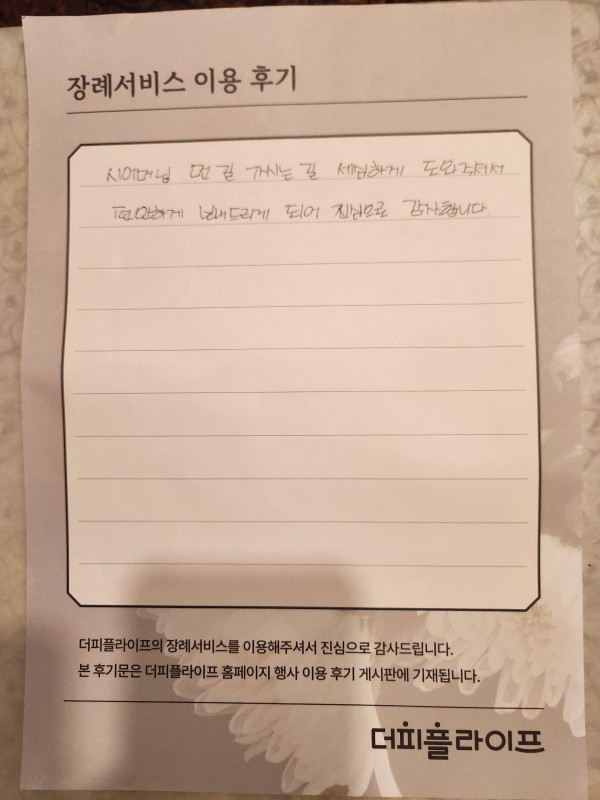 장례서비스 이용 후기
시어머님 먼 길 가시는 길 세심하게 도와주셔서
편안하게 보내드리게 되어 진심으로 감사합니다.
더피플라이프의 장례서비스를 이용해주셔서 진심으로 감사드립니다.
본 후기문은 더피플라이프 홈페이지 행사 이용 후기 게시판에 기재됩니다.
더피플라이프